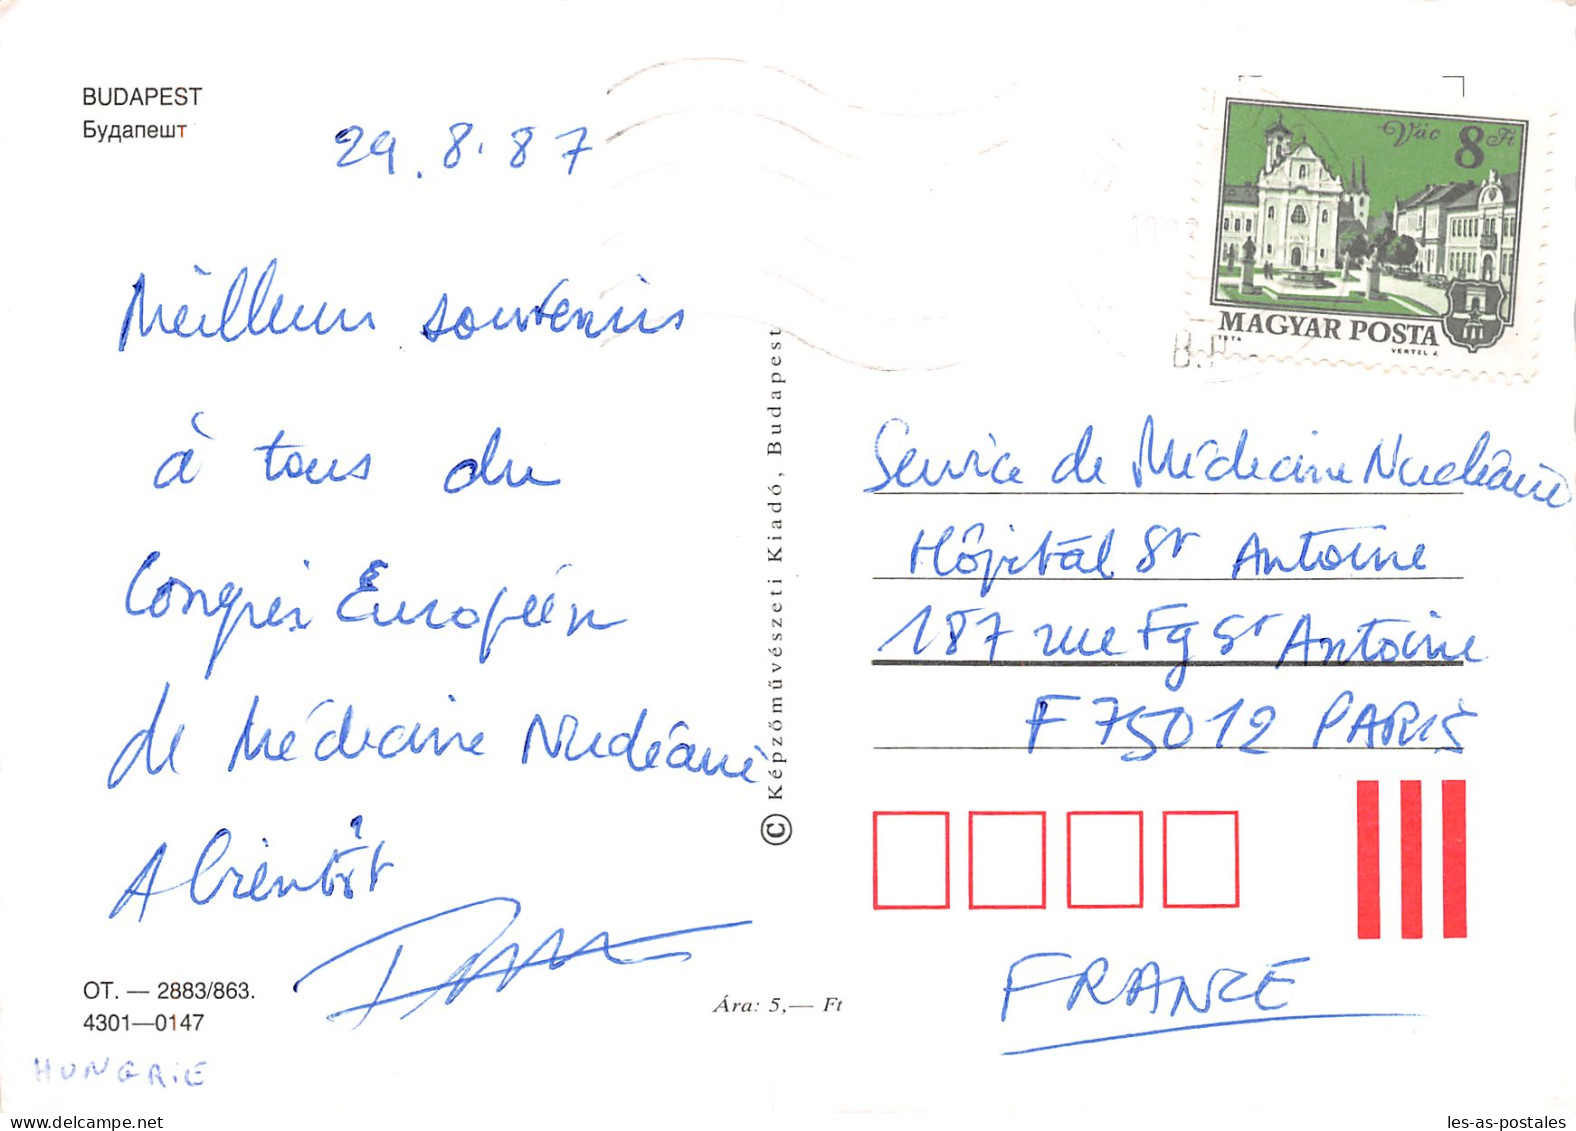 BUDAPEST
Будапешт
29.8.87
Meilleurs souvenirs
à tous du
Congrès Européen
de Médecine Nucléaire
A bientôt
OT. — 2883/863.
4301—0147
HONGRIE
© Képzőművészeti Kiadó, Budapest
Ára: 5,— Ft
Vác 8 Ft
MAGYAR POSTA
1974 VERTEL J.
Service de Médecine Nucléaire
Hôpital St Antoine
187 rue Fg St Antoine
F 75012 PARIS
FRANCE
les-as-postales